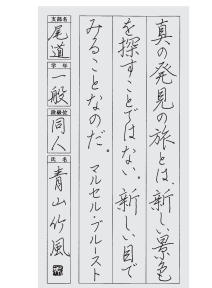 真の発見の旅とは、新しい景色
を探すことではない。新しい目で
みることなのだ。マルセル・プルースト
支部名
尾道
学年
一般
段級位
同人
氏名
青山竹風